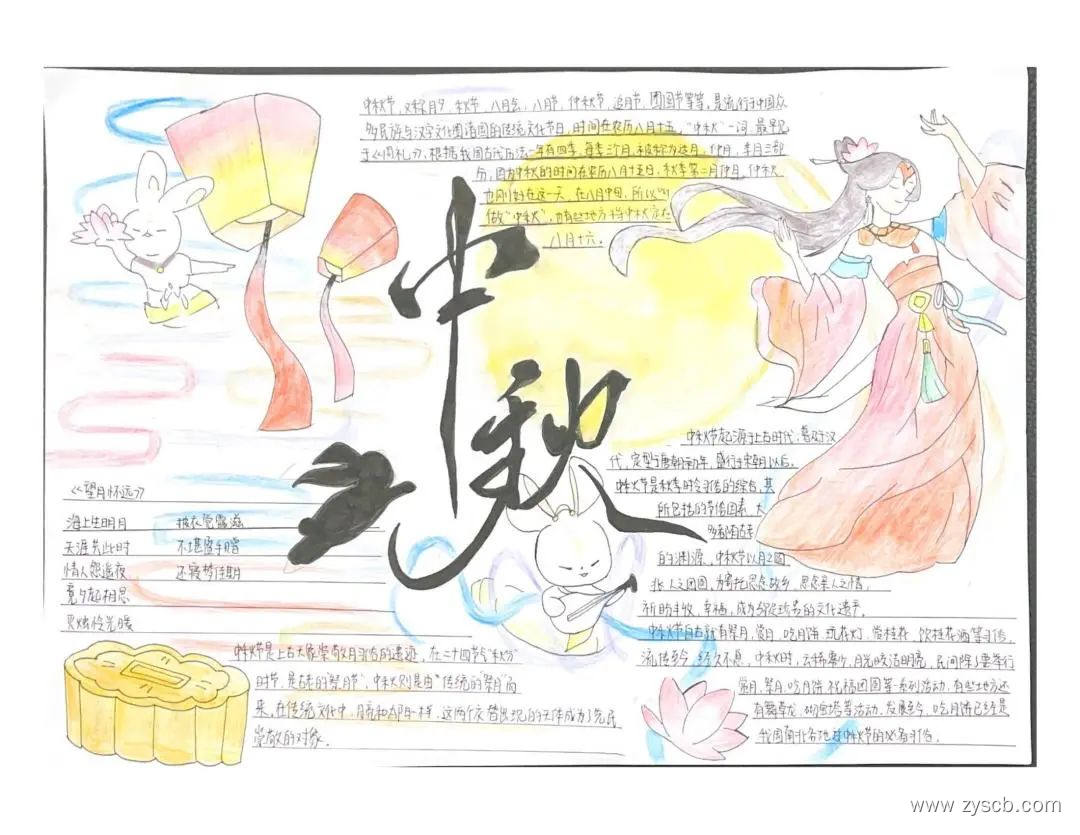 中秋节，又称月夕、秋节、八月会、八月节、仲秋节、追月节、团圆节等等，是流行于中国众
多民族与汉字文化圈诸国的传统文化节日，时间在农历八月十五，“中秋”一词，最早见
于《周礼》，根据我国古代历法一年有四季，每季三个月，被称为孟月，仲月，季月三部
分，因为中秋的时间在农历八月十五日，秋季第二月仲月，仲秋
也刚好在这一天，在八月中旬，所以叫
做“中秋”，也有些地方将中秋定在
八月十六。
中秋
中秋节起源于上古时代，普及于汉
代，定型于唐朝初年，盛行于宋朝以后。
中秋节是秋季时令习俗的综合，其
所包括的节俗因素，大
多都有古老
的渊源，中秋节以月之圆
兆人之团圆，为寄托思念故乡，思念亲人之情，
祈盼丰收、幸福，成为多姿多彩的文化遗产。
中秋节自古就有祭月，赏月，吃月饼，玩花灯，赏桂花，饮桂花酒等习俗，
流传至今，经久不息，中秋时，云稀雾少，月光皎洁明亮，民间除了要举行
赏月，祭月，吃月饼，祝福团圆等一系列活动，有些地方还
有舞草龙，砌宝塔等活动，发展至今，吃月饼已经是
我国南北各地过中秋节的必备习俗。
《望月怀远》
海上生明月 披衣觉露滋
天涯共此时 不堪盈手赠
情人怨遥夜 还寝梦佳期
竟夕起相思
灭烛怜光暖
中秋节是上古天象崇敬月习俗的遗迹，在二十四节气“秋分”
时节，是古老的“祭月节”，中秋则是由“传统的祭月”而
来，在传统文化中，月亮和太阳一样，这两个交替出现的天体成为了先民
崇敬的对象。
www.zyscb.com